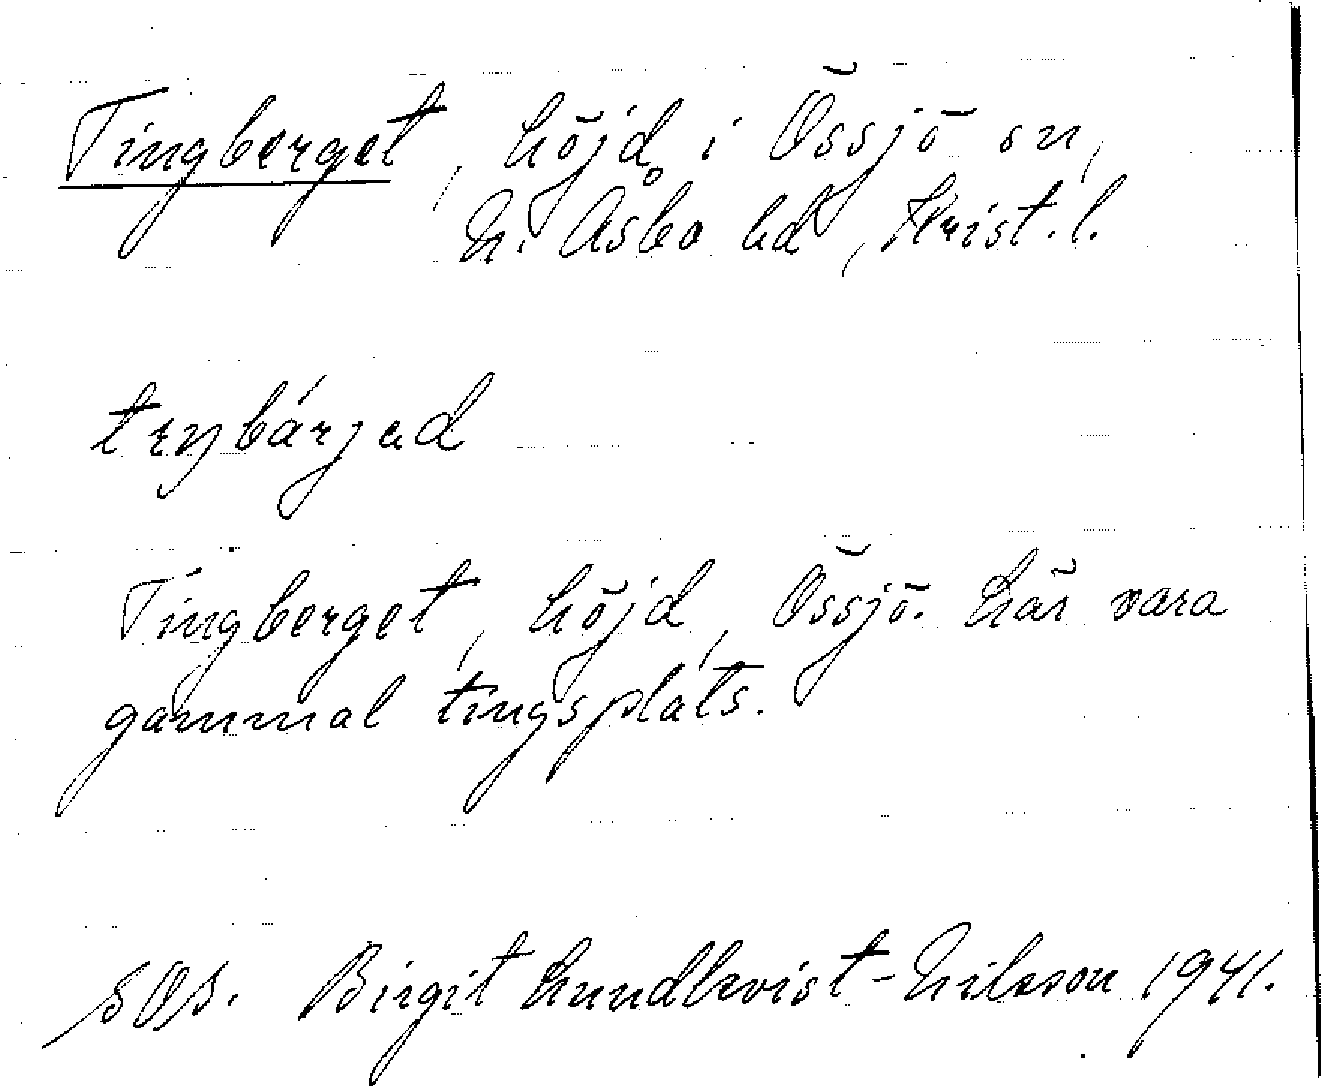 Tingberget, höjd i Össjö sn,
N. Åsbo hd, Krist. l.
Tingberget, höjd, Össjö. Lär vara
gammal tingsplats.
Birgit Lundkvist-Nilsson 1941.